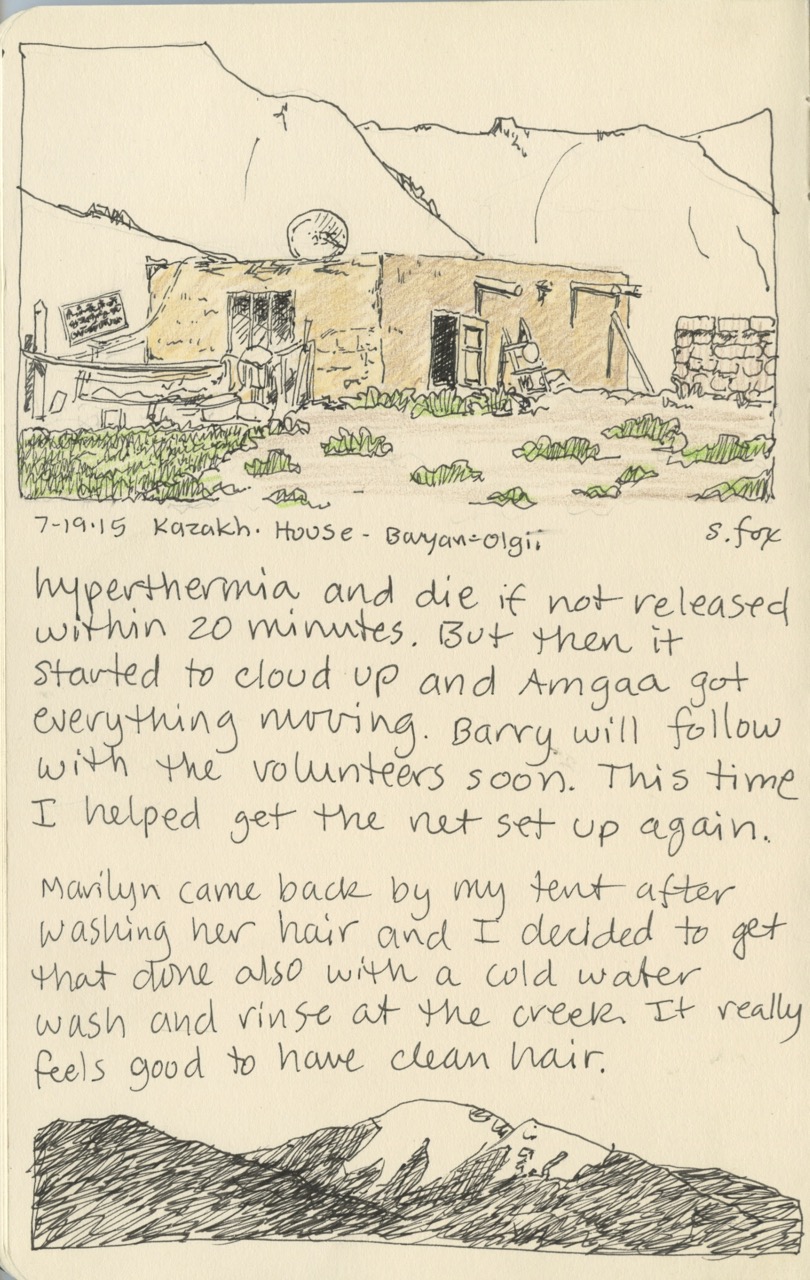 7-19-15 Kazakh. House - Bayan-Olgii
S. fox
hyperthermia and die if not released
within 20 minutes. But then it
started to cloud up and Amgaa got
everything moving. Barry will follow
with the volunteers soon. This time
I helped get the net set up again.
Marilyn came back by my tent after
washing her hair and I decided to get
that done also with a cold water
wash and rinse at the creek. It really
feels good to have clean hair.